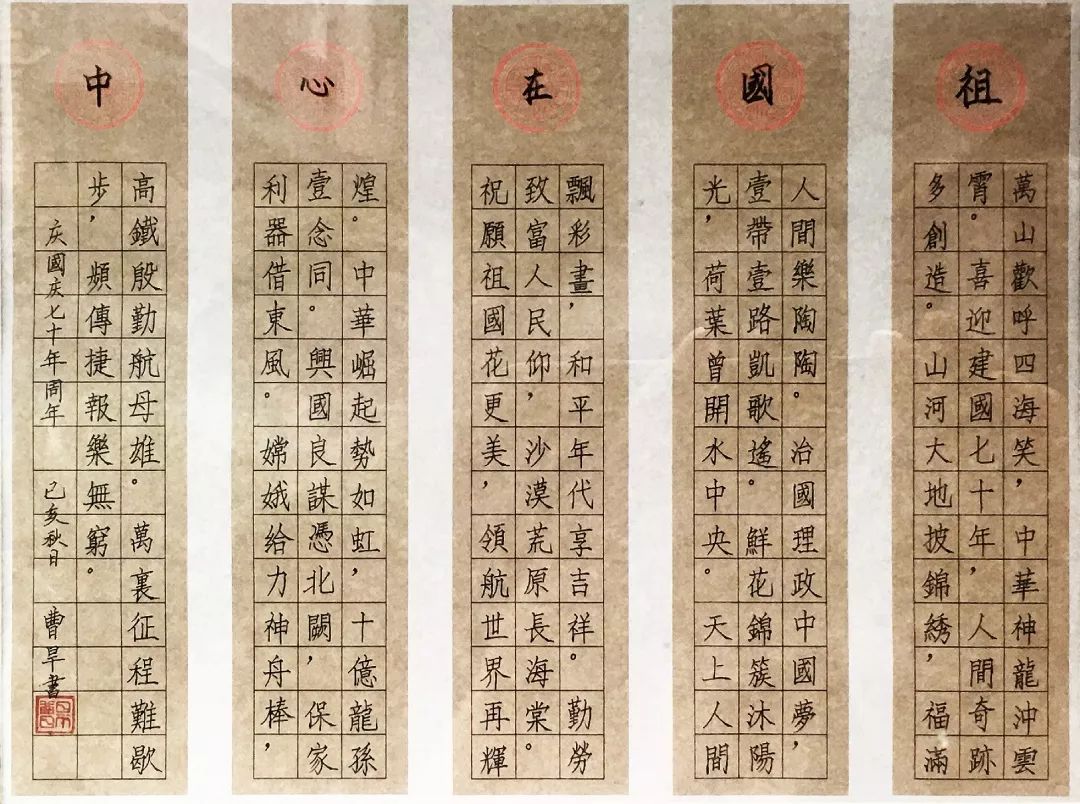 祖
萬山歡呼四海笑，中華神龍沖雲
霄。喜迎建國七十年，人間奇跡
多創造。山河大地披錦綉，福滿
國
人間樂陶陶。治國理政中國夢，
壹帶壹路凱歌遙。鮮花錦簇沐陽
光，荷葉曾開水中央。天上人間
在
飄彩畫，和平年代享吉祥。勤勞
致富人民仰，沙漠荒原長海棠。
祝願祖國花更美，領航世界再輝
心
煌。中華崛起勢如虹，十億龍孫
壹念同。興國良謀憑北闕，保家
利器借東風。嫦娥给力神舟棒，
中
高鐵殷勤航母雄。萬裏征程難歇
步，頻傳捷報樂無窮。
庆國庆七十年周年 己亥秋日 曹旱書